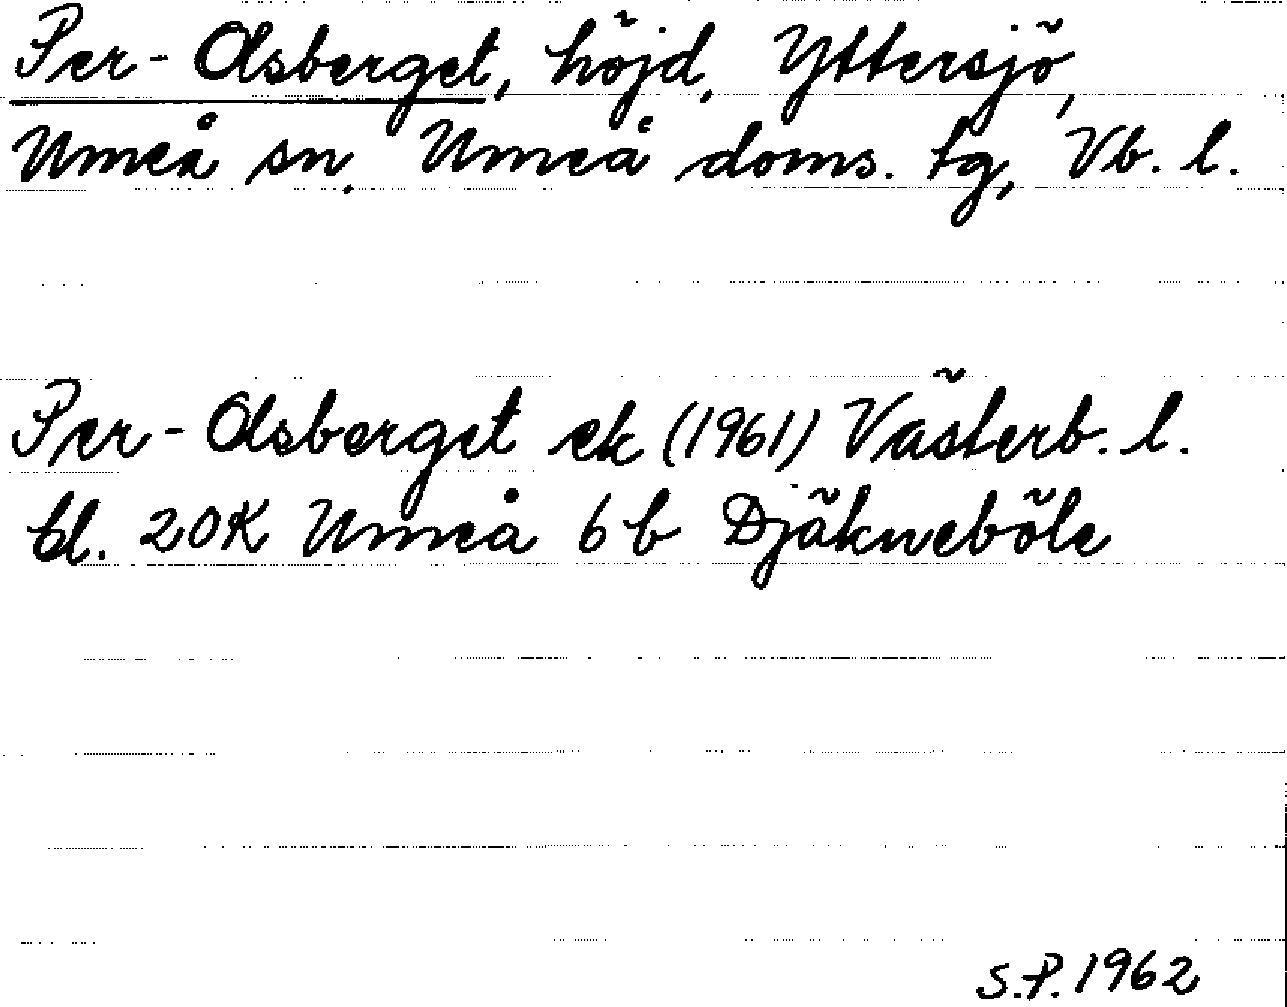 Per-Olsberget, höjd, Yttersjö,
Umeå sn, Umeå doms. tg, Vb. l.
Per-Olsberget ek (1961) Västerb. l.
bl. 20K Umeå 6b Djäkneböle
S.P. 1962